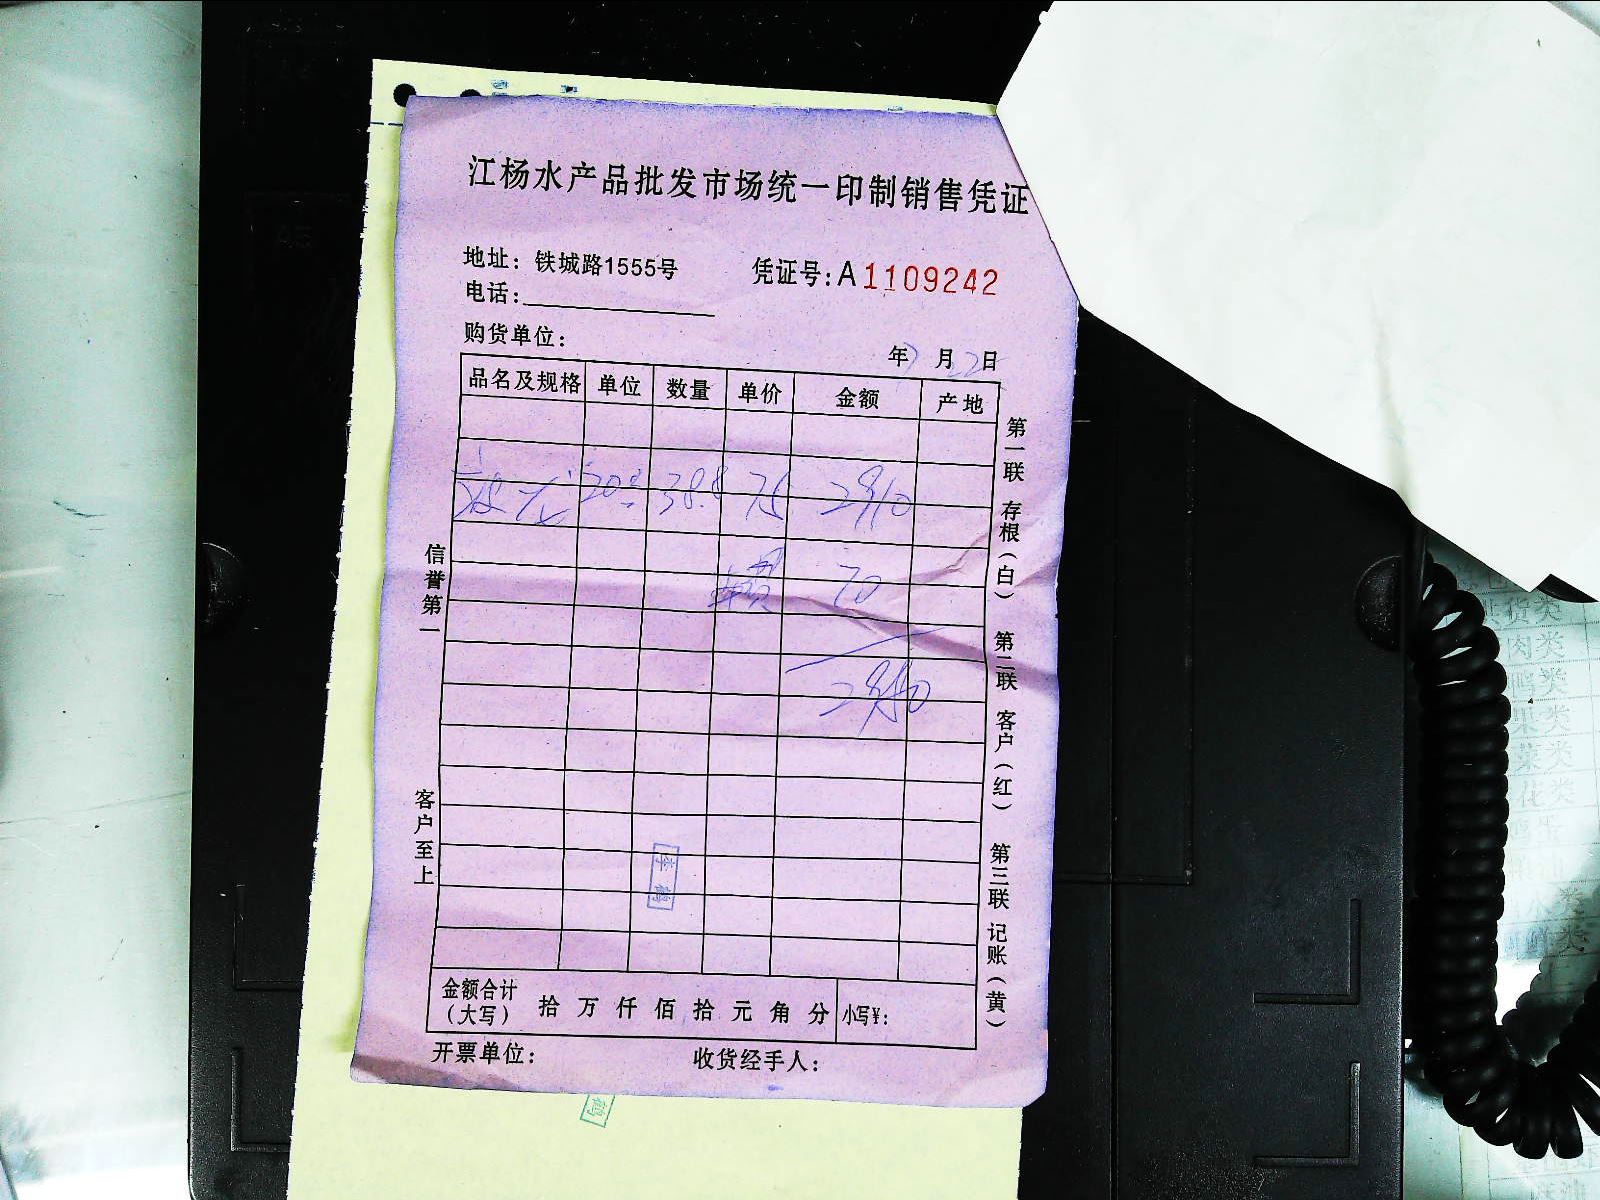 江杨水产品批发市场统一印制销售凭证
地址：铁城路1555号 凭证号：A1109242
电话：
购货单位： 年7月22日
品名及规格 单位 数量 单价 金额 产地
38.8 75 2910
车费 70
2980
金额合计（大写） 拾 万 仟 佰 拾 元 角 分 小写¥：
开票单位： 收货经手人：
信誉第一
客户至上
第一联 存根（白） 第二联 客户（红） 第三联 记账（黄）
李鹤
鹤
货类
肉类
鸭类
果类
菜类
花类